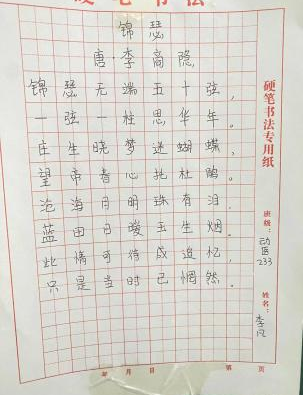 硬笔书法
锦瑟
唐·李商隐
锦瑟无端五十弦,
一弦一柱思华年。
庄生晓梦迷蝴蝶,
望帝春心托杜鹃。
沧海月明珠有泪,
蓝田日暖玉生烟。
此情可待成追忆,
只是当时已惘然。
硬笔书法专用纸
班级:动医233
姓名:李
年 月 日 第 页